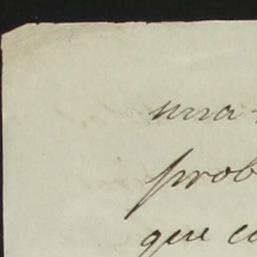 una
prob
que